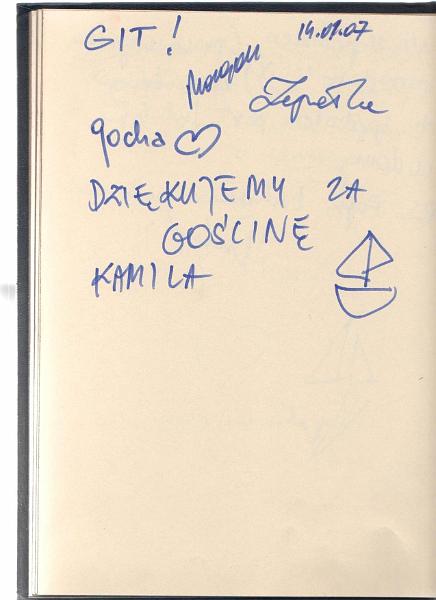 GIT! 14.09.07
Gocha
DZIĘKUJEMY ZA
GOŚCINĘ
KAMILA